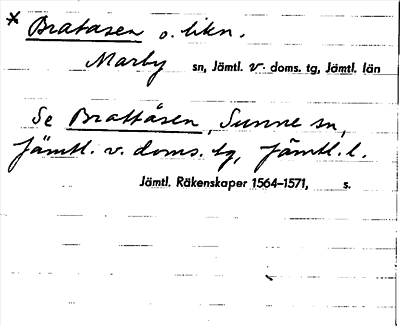 * Bratasen o. likn.
Marby sn, Jämtl. v. doms. tg, Jämtl. län
Se Brattåsen, Sunne sn,
Jämtl. v. doms. tg, Jämtl. l.
Jämtl. Räkenskaper 1564–1571, s.